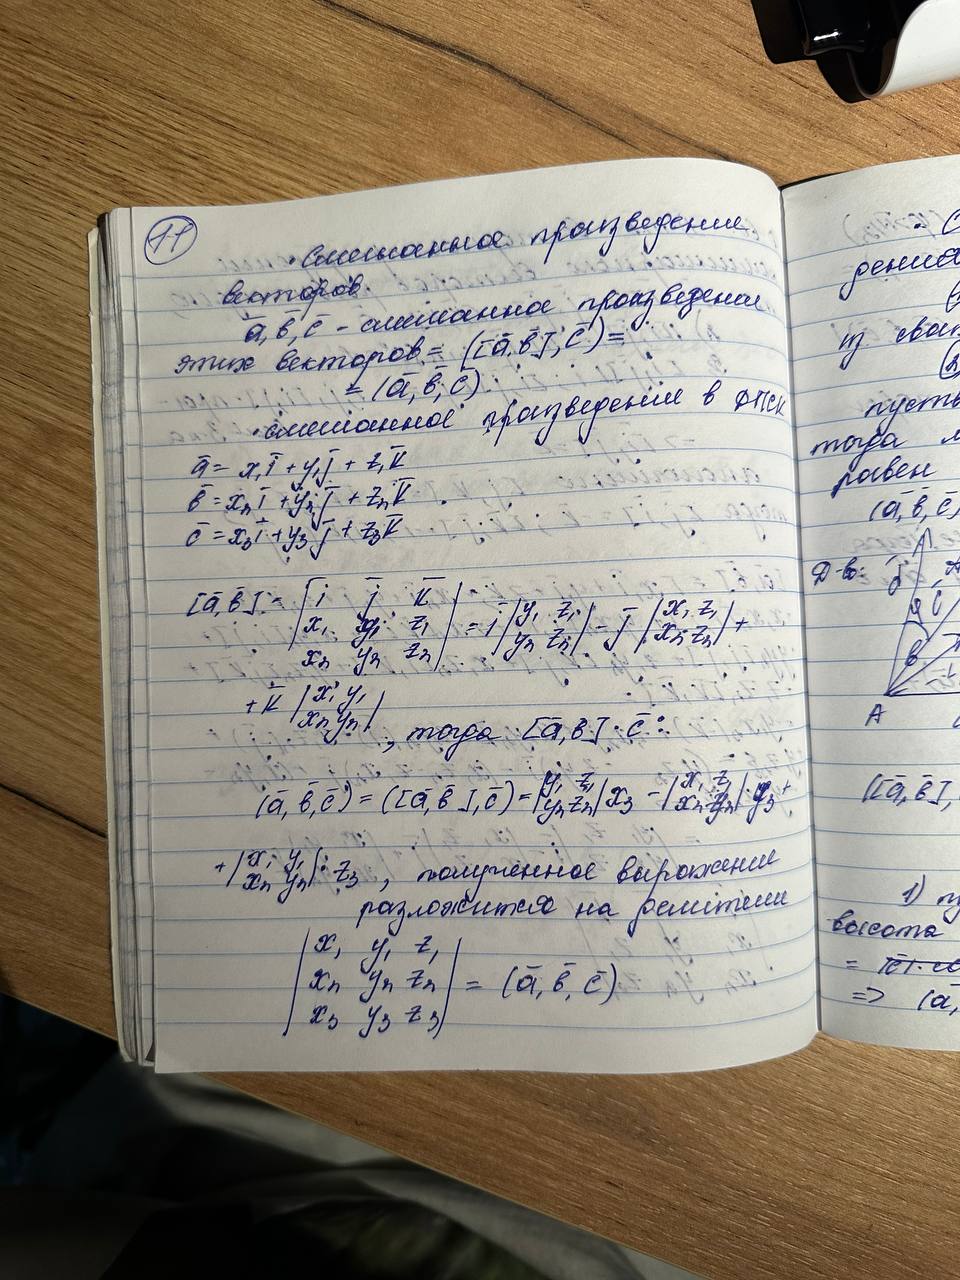 11
Смешанное произведение
векторов.
a̅, b̅, c̅ - смешанное произведение
этих векторов = ([a̅, b̅], c̅) =
= (a̅, b̅, c̅)
·смешанное произведение в ФПСК
a̅ = x₁i̅ + y₁j̅ + z₁k̅
b̅ = x₂i̅ + y₂j̅ + z₂k̅
c̅ = x₃i̅ + y₃j̅ + z₃k̅
[a̅, b̅] = |i̅ j̅ k̅
x₁ y₁ z₁| = i̅ |y₁ z₁ / y₂ z₂| - j̅ |x₁ z₁ / x₂ z₂| +
x₂ y₂ z₂
+ k̅ |x₁ y₁ / x₂ y₂|
, тогда [a̅, b̅] · c̅:
(a̅, b̅, c̅) = ([a̅, b̅], c̅) = |y₁ z₁ / y₂ z₂| x₃ - |x₁ z₁ / x₂ z₂| · y₃ +
+ |x₁ y₁ / x₂ y₂| · z₃, полученное выражение
разложится на
x₁ y₁ z₁
x₂ y₂ z₂ = (a̅, b̅, c̅)
x₃ y₃ z₃
С
дения
из сво
(2)
пусть
тогда
равен
(a̅, b̅, c̅)
Д-во:
A
([a̅, b̅],
1) п
высота
=
=> (a̅,